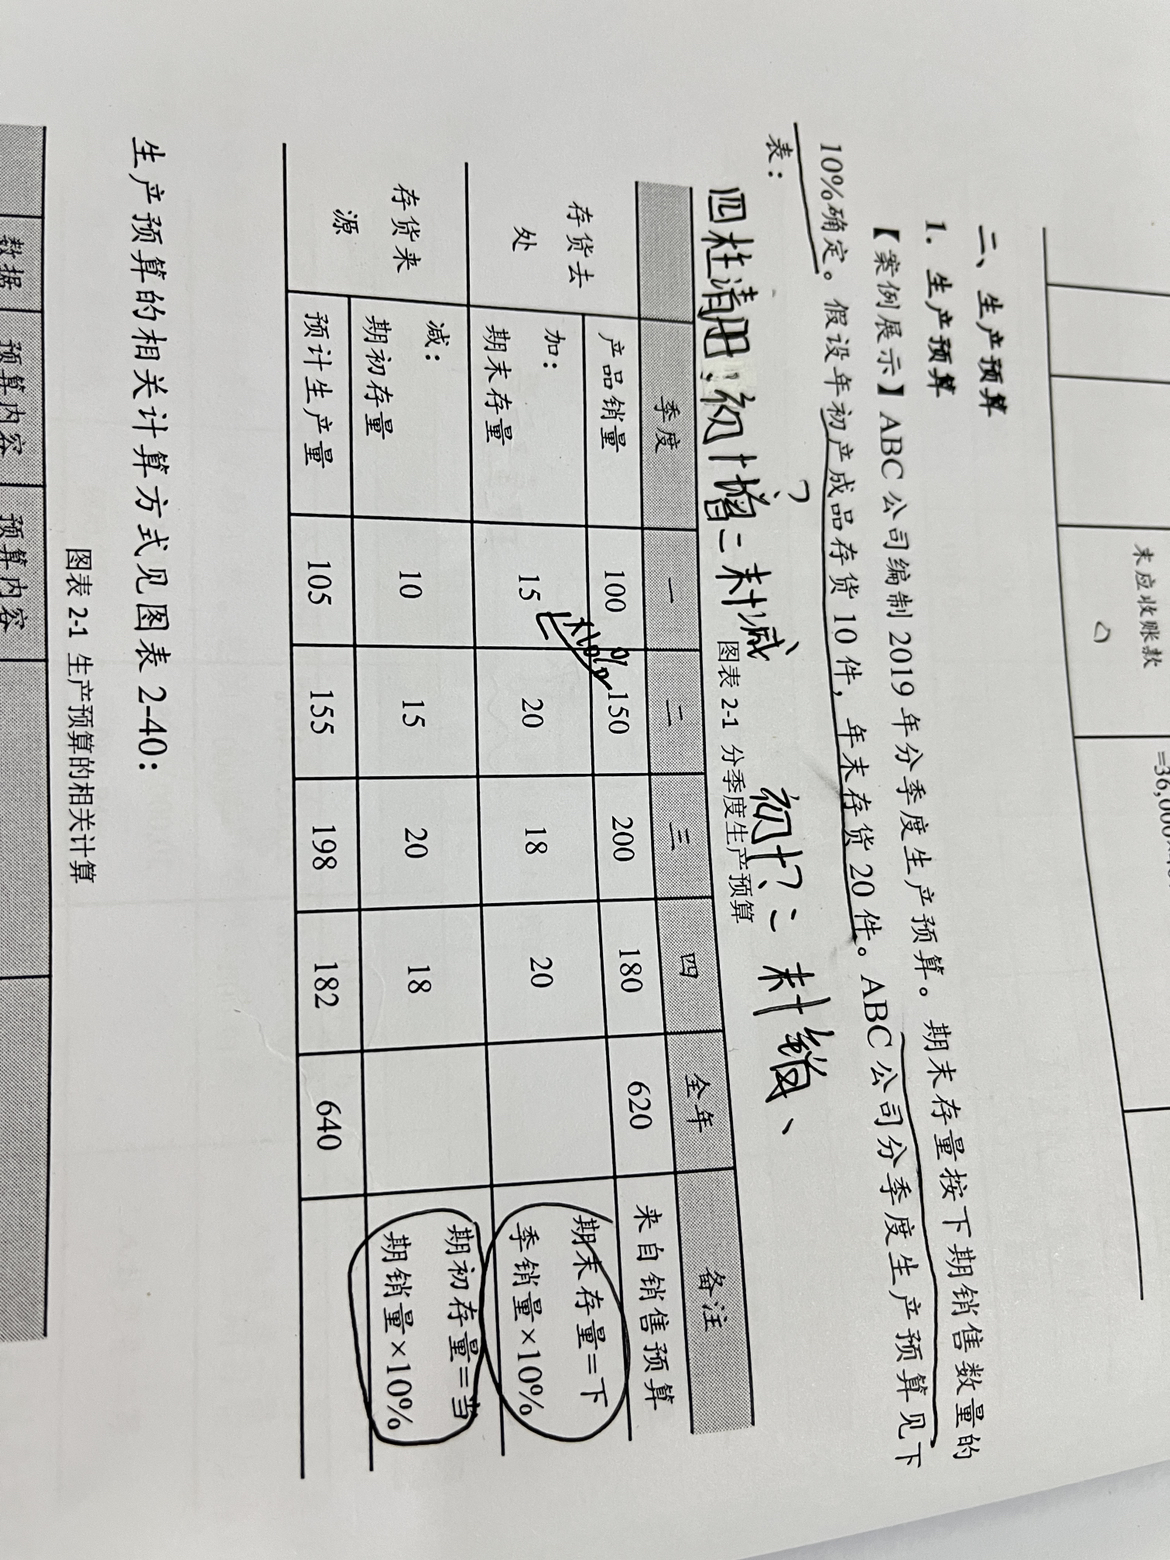 末应收账款
0
=36,000
二、生产预算
1. 生产预算
【案例展示】ABC 公司编制 2019 年分季度生产预算。期末存量按下期销售数量的
10%确定。假设年初产成品存货 10 件，年末存货 20 件。ABC 公司分季度生产预算见下
表：
初+?=末+销、
四柱清册：初+增=末+减、
?
图表 2-1 分季度生产预算
季度 一 二 三 四 全年 备注
存货去处 产品销量 100 150 200 180 620 来自销售预算
加：期末存量 15 20 18 20 期末存量=下季销量×10%
×10%
存货来源 减：期初存量 10 15 20 18 期初存量=当期销量×10%
预计生产量 105 155 198 182 640
生产预算的相关计算方式见图表 2-40：
图表 2-1 生产预算的相关计算
数据 预算内容 预算内容